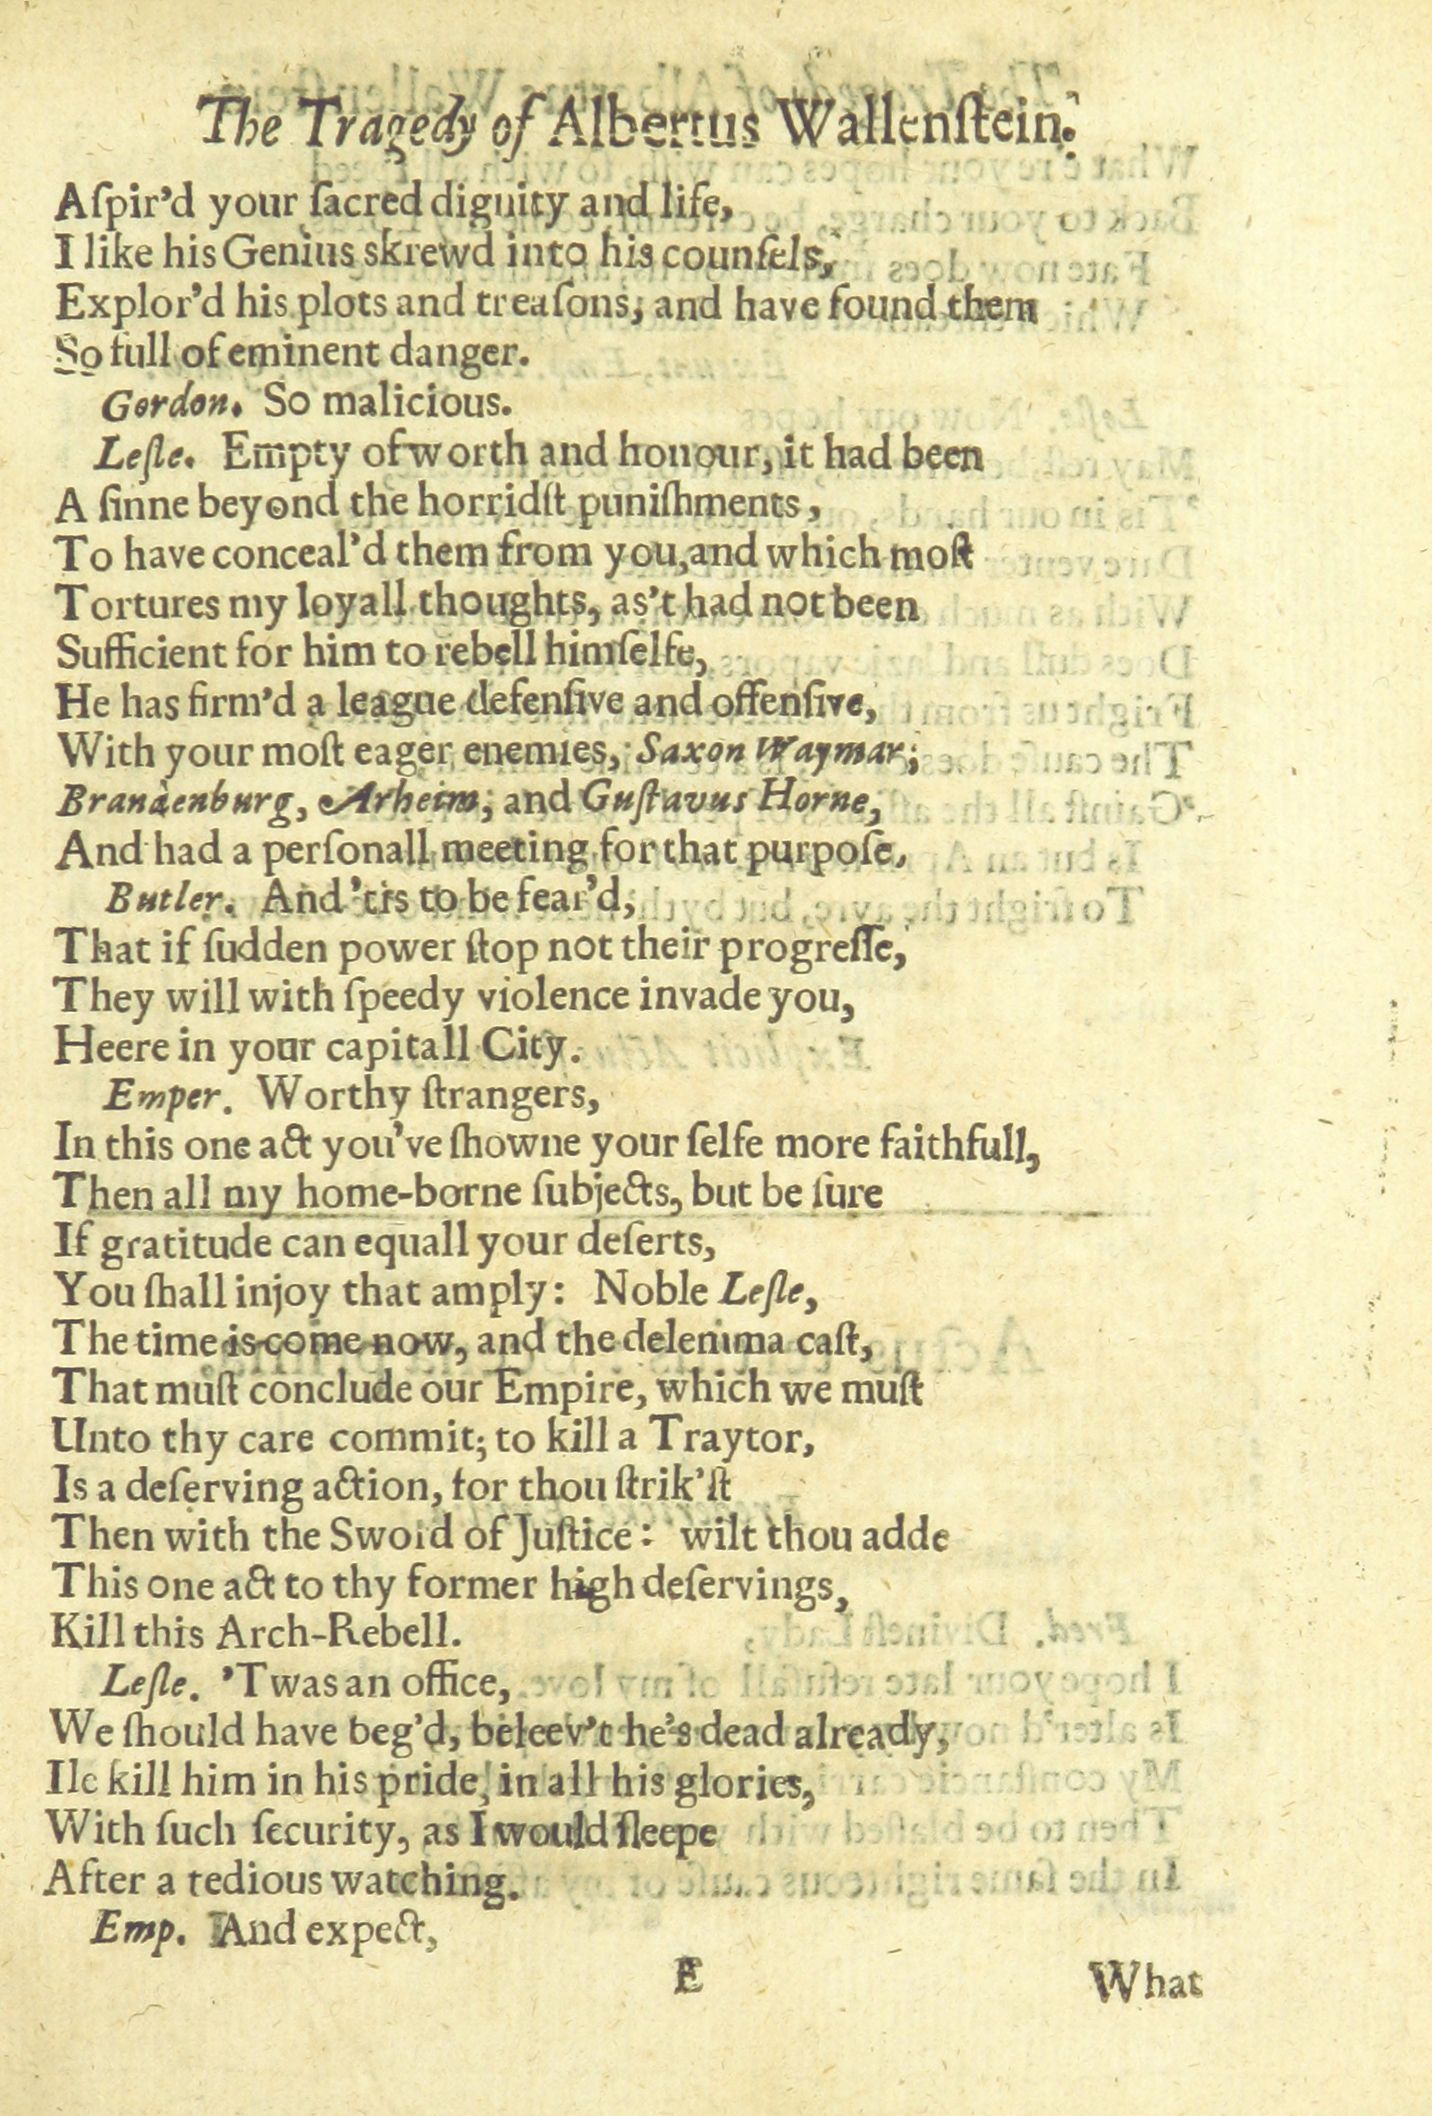 The Tragedy of Albertus Wallenſtein.
Aſpir’d your ſacred dignity and life,
I like his Genius skrewd into his counſels,
Explor’d his plots and treaſons, and have found them
So full of eminent danger.
Gordon. So malicious.
Leſle. Empty of worth and honour, it had been
A ſinne beyond the horridſt puniſhments,
To have conceal’d them from you,and which moſt
Tortures my loyall thoughts, as’t had not been
Sufficient for him to rebell himſelfe,
He has firm’d a league defenſive and offenſive,
With your moſt eager enemies, Saxon Waymar;
Brandenburg, Arheim, and Guſtavus Horne,
And had a perſonall meeting for that purpoſe.
Butler. And ’tis to be fear’d,
That if ſudden power ſtop not their progreſſe,
They will with ſpeedy violence invade you,
Heere in your capitall City.
Emper. Worthy ſtrangers,
In this one act you’ve ſhowne your ſelfe more faithfull,
Then all my home-borne ſubjects, but be ſure
If gratitude can equall your deſerts,
You ſhall injoy that amply: Noble Leſle,
The time is come now, and the delemma caſt,
That muſt conclude our Empire, which we muſt
Unto thy care commit; to kill a Traytor,
Is a deſerving action, for thou ſtrik’ſt
Then with the Sword of Juſtice: wilt thou adde
This one act to thy former high deſervings,
Kill this Arch-Rebell.
Leſle. ’Twas an office,
We ſhould have beg’d, beleev’t he’s dead already,
Ile kill him in his pride, in all his glories,
With ſuch ſecurity, as I would ſleepe
After a tedious watching.
Emp. And expect,
E What